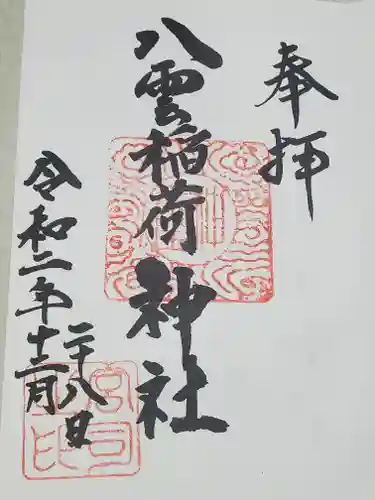 奉拝
八雲稲荷神社
令和二年十二月
二十八日